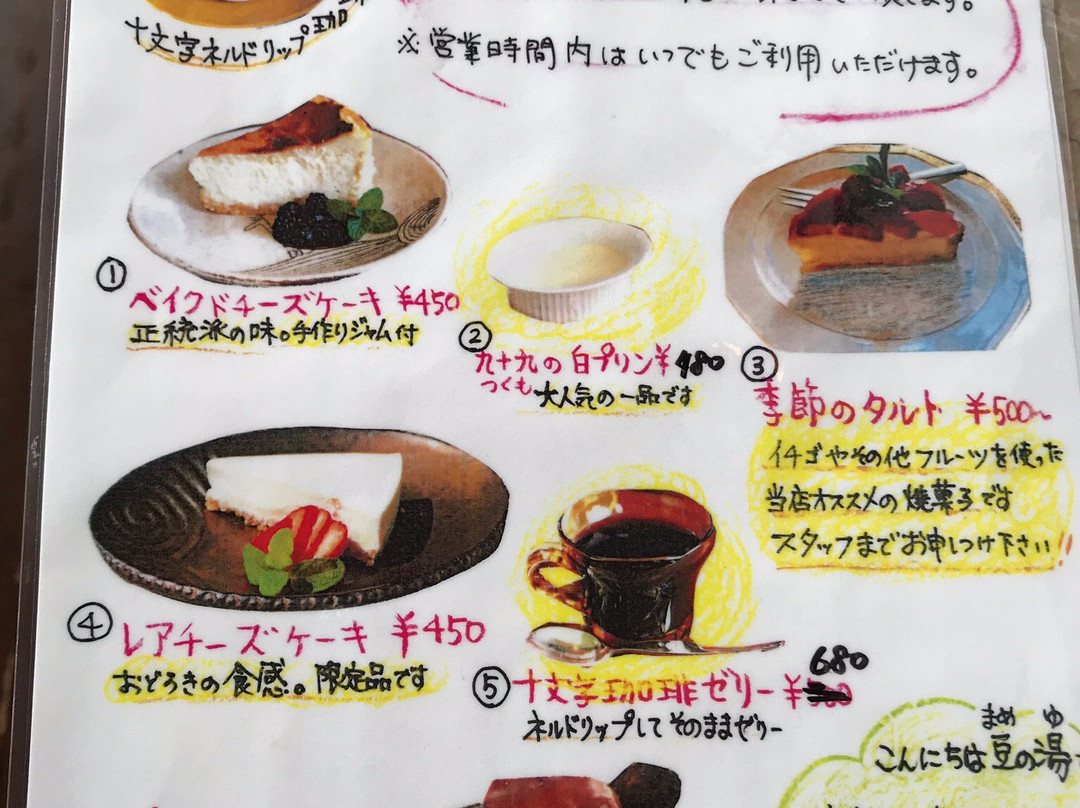 十文字ネルドリップ珈
※営業時間内はいつでもご利用いただけます。
①
ベイクドチーズケーキ ¥450
正統派の味。手作りジャム付
②
九十九の白プリン¥480
つくも
大人気の一品です
③
季節のタルト ¥500〜
イチゴやその他フルーツを使った
当店オススメの焼菓子です
スタッフまでお申しつけ下さい!!
④
レアチーズケーキ ¥450
おどろきの食感。限定品です
680
⑤十文字珈琲ゼリー¥
ネルドリップしてそのままゼリー
まめ ゆ
こんにちは豆の湯